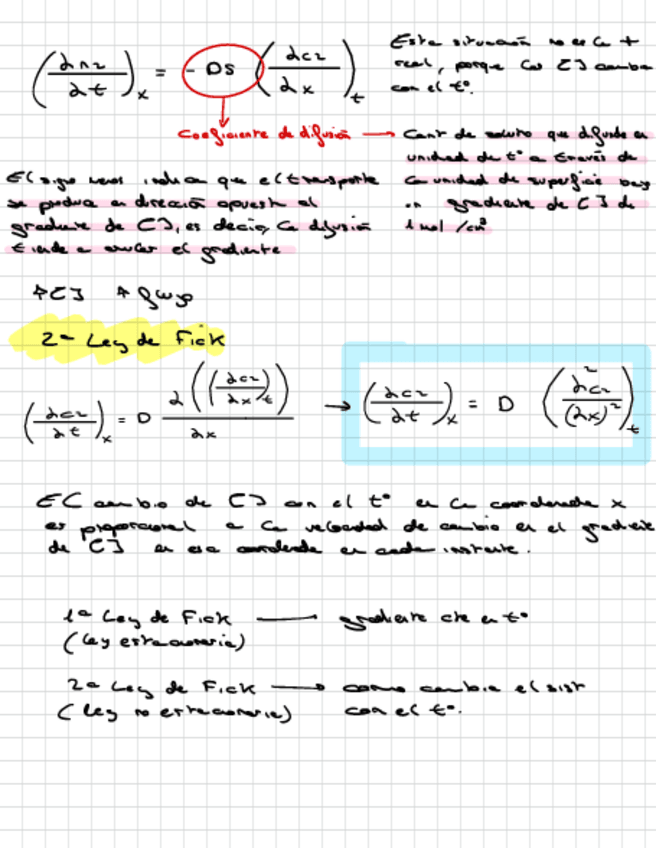 (∂n2/∂t)x = - DS (∂c2/∂x)t
Esta situación no es la +
real, porque las [ ] cambian
con el tº.
Coeficiente de difusión → Cant de soluto que difunde en
unidad de tº a través de
la unidad de superficie bajo
un gradiente de [ ] de
1 mol/cm³
El signo menos indica que el transporte
se produce en dirección opuesta al
gradiente de [ ], es decir, la difusión
tiende a anular el gradiente
↑[ ] ↑ flujo
2ª Ley de Fick
(∂c2/∂t)x = D ∂((∂c2/∂x)t)/∂x → (∂c2/∂t)x = D (∂²c2/(∂x)²)t
El cambio de [ ] con el tº en la coordenada x
es proporcional a la velocidad de cambio en el gradiente
de [ ] en esa coordenada en cada instante.
1ª Ley de Fick —— gradiente cte en tº
(Ley estacionaria)
2ª Ley de Fick → como cambia el sist
(Ley no estacionaria) con el tº.